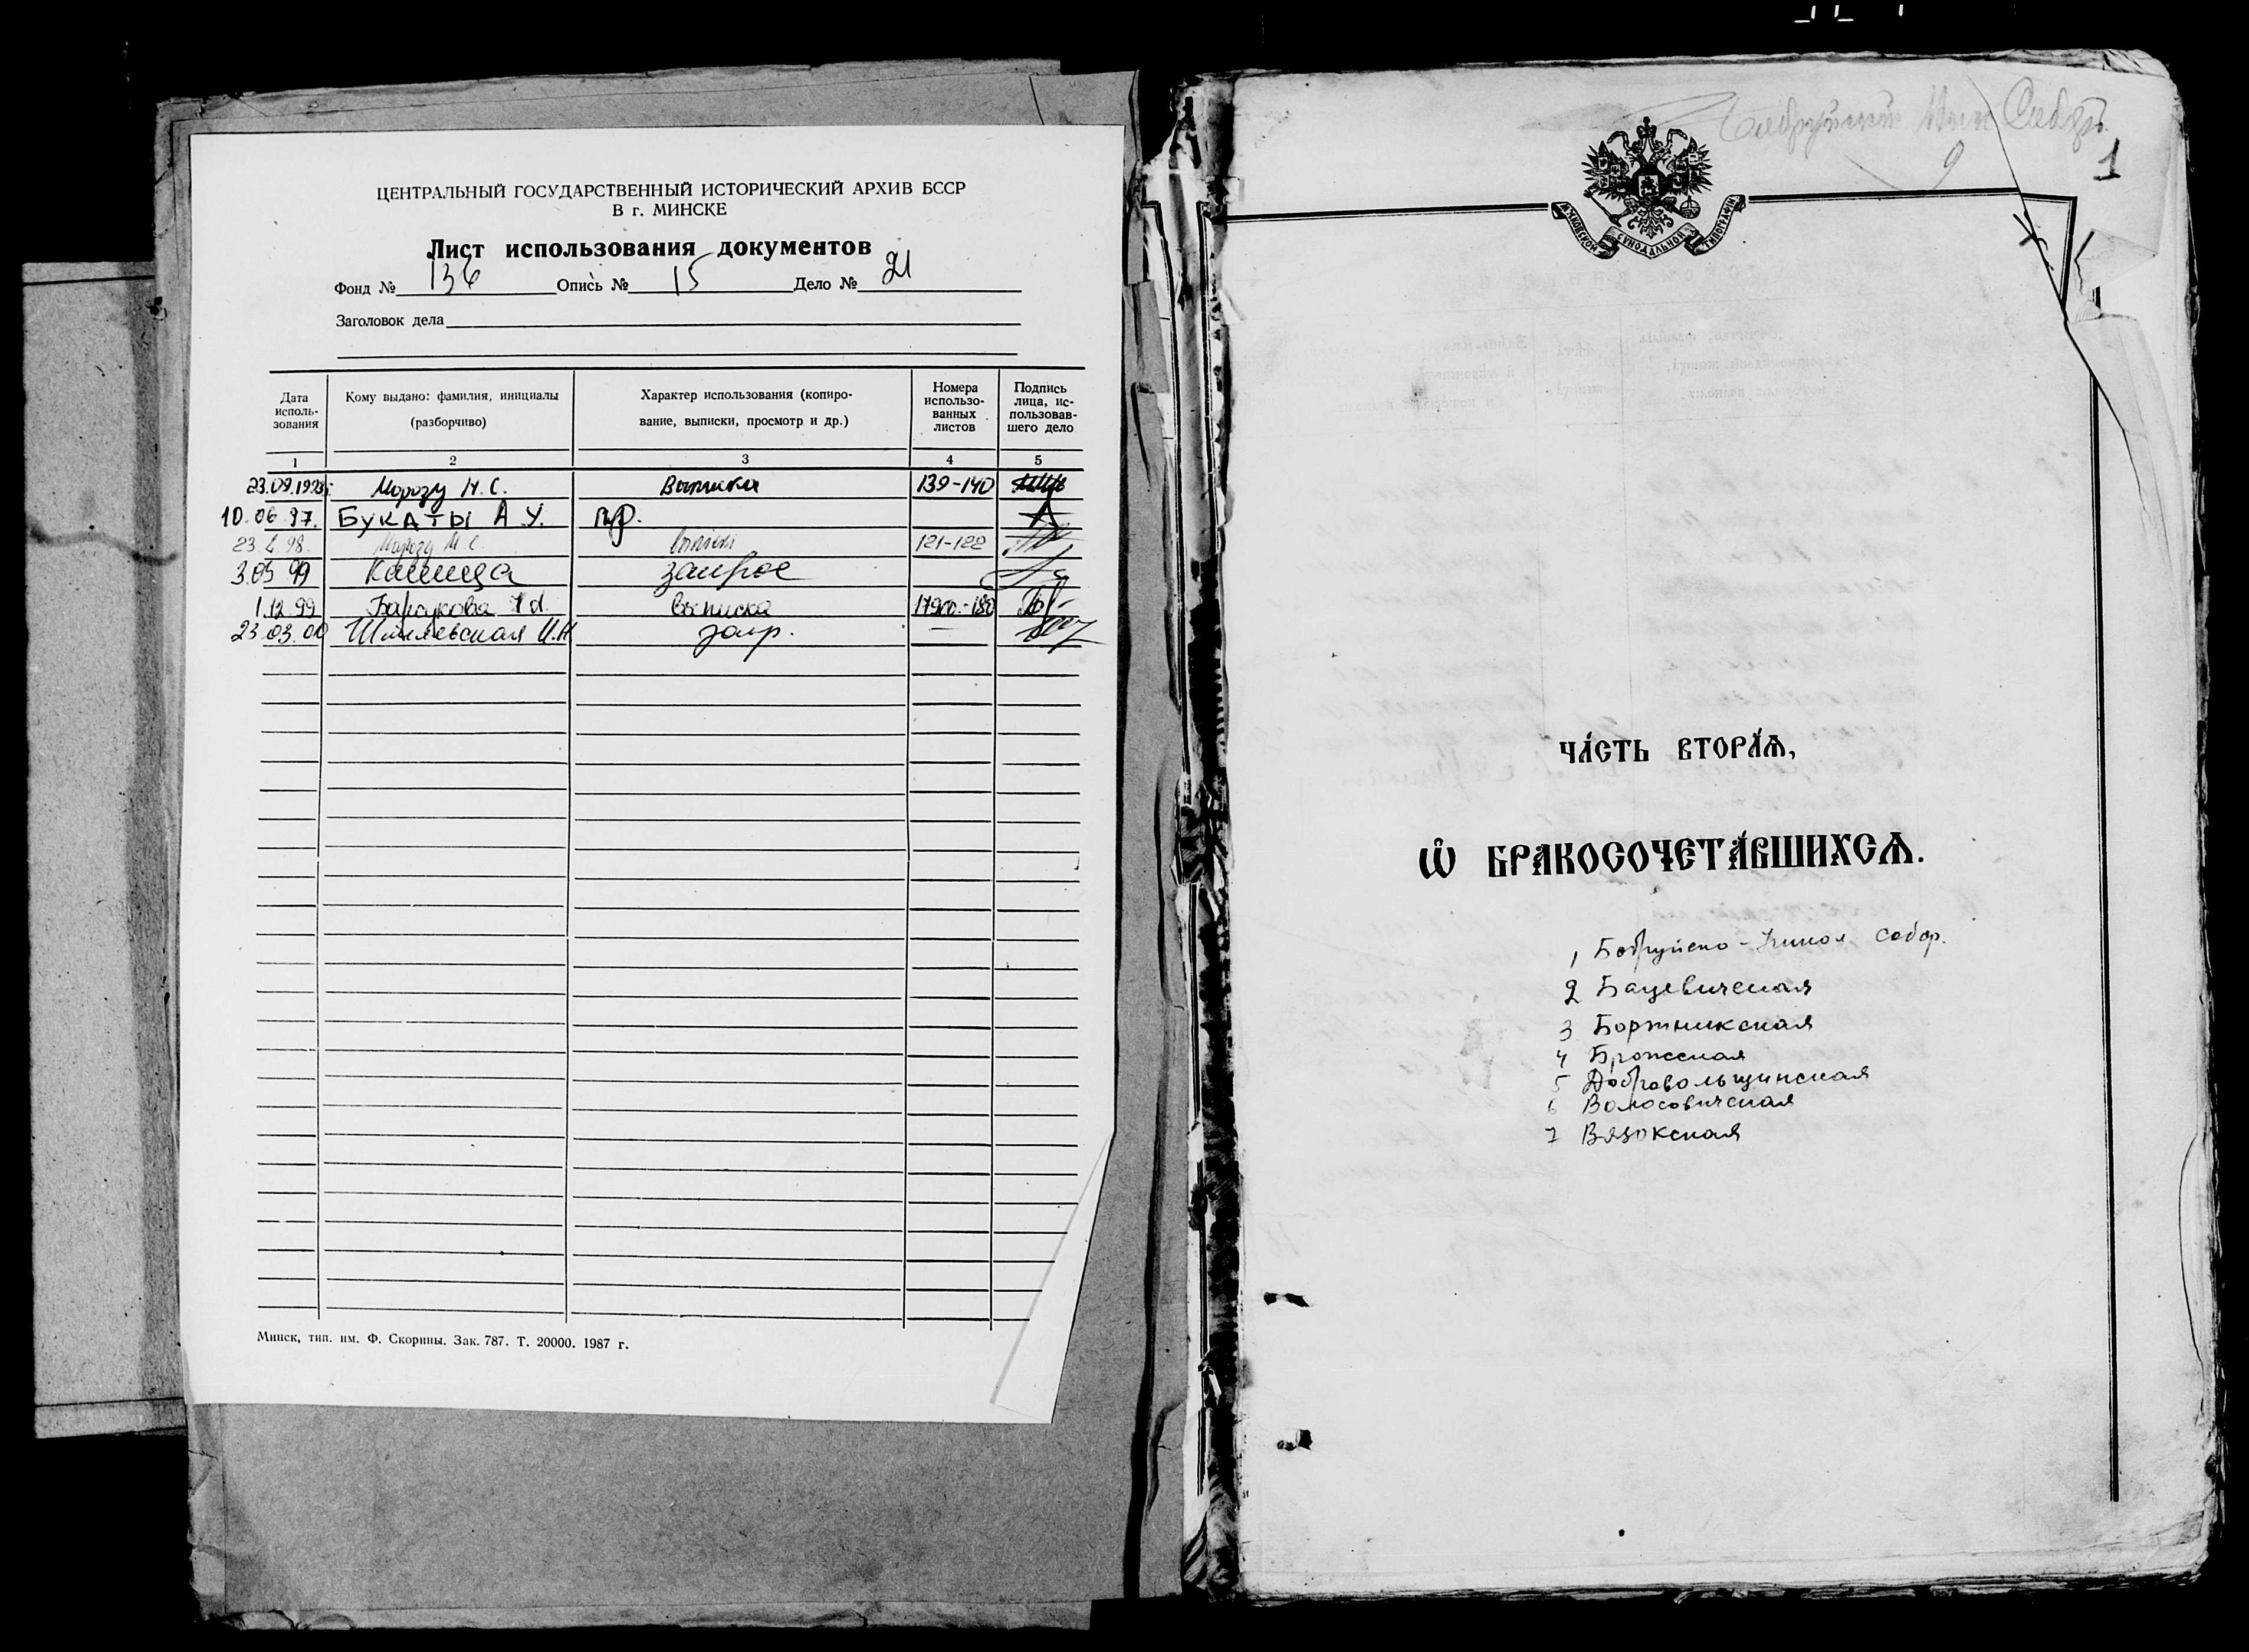 ЦЕНТРАЛЬНЫЙ ГОСУДАРСТВЕННЫЙ ИСТОРИЧЕСКИЙ АРХИВ БССР
В г. МИНСКЕ
Лист использования документов
Фонд № 136 Опись № 15 Дело № 21
Заголовок дела
Дата исполь-
зования
Кому выдано: фамилия, инициалы
(разборчиво)
Характер использования (копиро-
вание, выписки, просмотр и др.)
Номера
использо-
ванных
листов
Подпись
лица, ис-
пользовав-
шего дело
1 2 3 4 5
Морозу М.С. Выписка 139-140
10.06.97. БУКАТЫ А.У. пр.
23. 98. Морозу М.С. 121-122
3.05 99 запрос
1.12.99 Барсукова выписка
23.03.00 запр.
Минск, тип. им. Ф. Скорины. Зак. 787. Т. 20000. 1987 г.
1
МОСКОВСКОЙ СУНОДАЛЬНОЙ ТИПОГРАФІИ
ЧА́СТЬ ВТОРА́Ѧ,
Ѽ БРАКОСОЧЕТА́ВШИХСѦ.
1 Бобруйско - собор.
2 Бацевичская
3 Бортникская
4 Брожская
5 Добровольщинская
6 Волосовичская
7 Вязокская